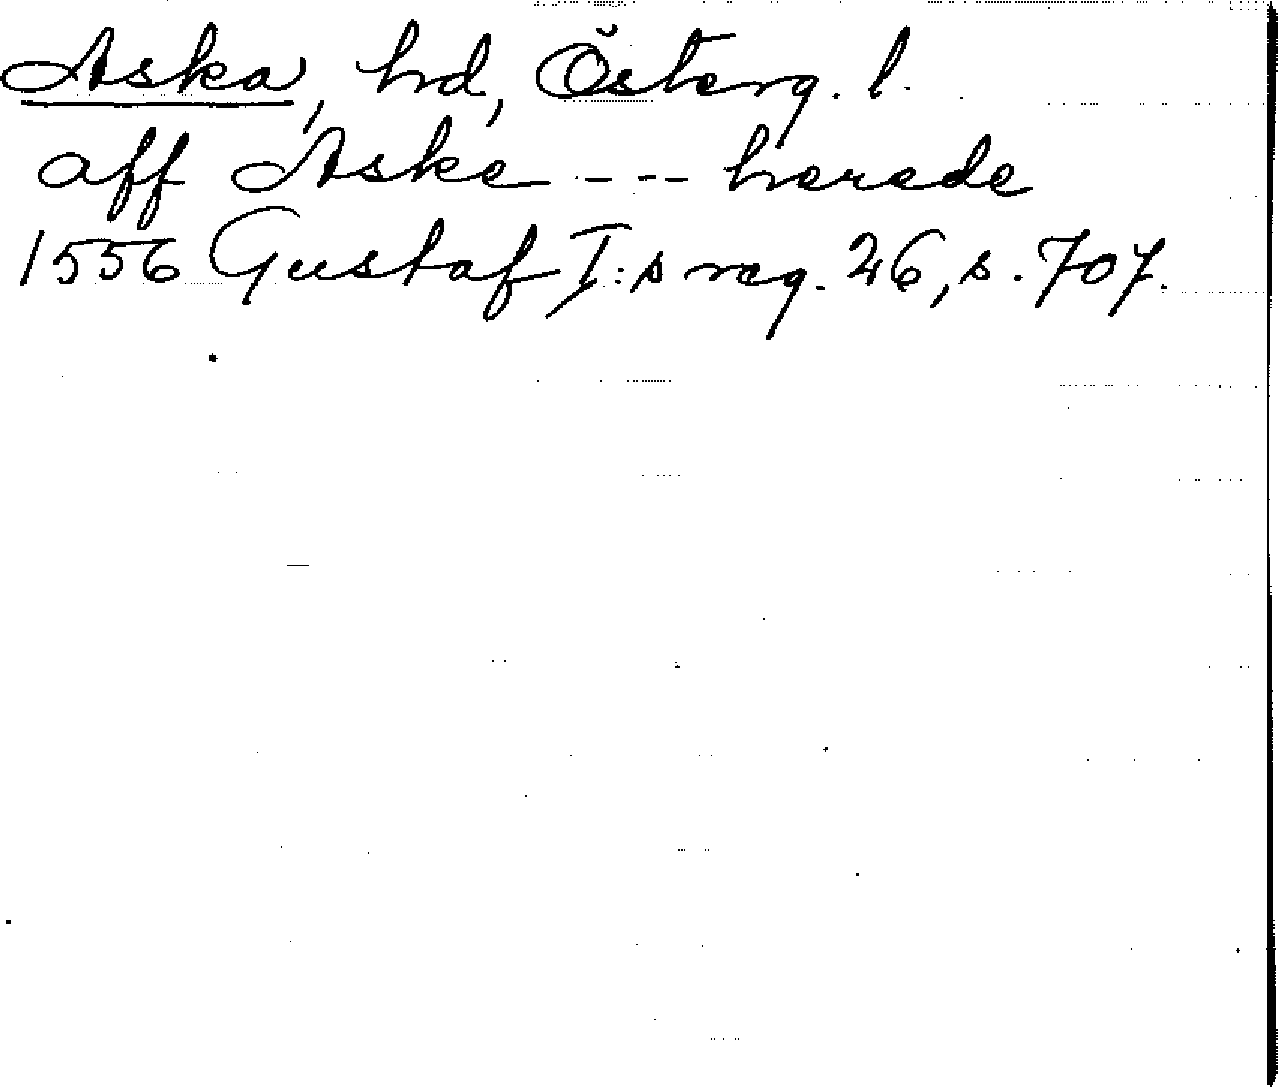 Aska, hd, Österg. l.
aff Aske --- herede
1556 Gustaf I:s reg. 26, s. 707.